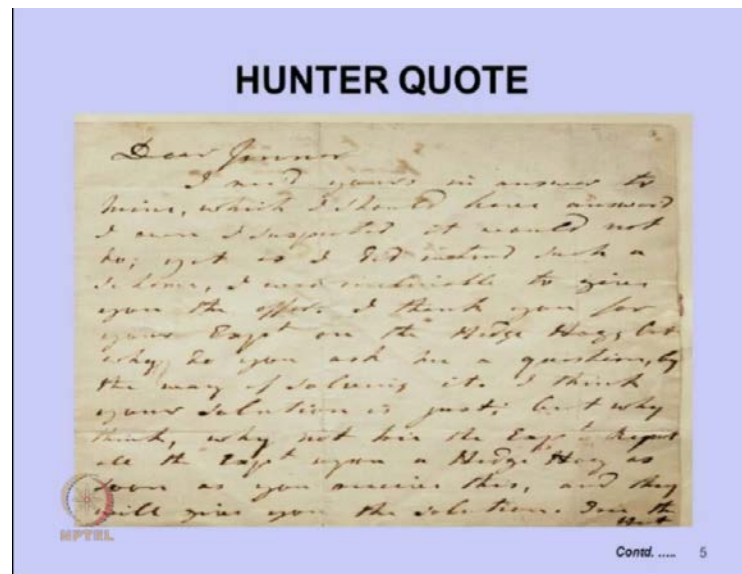 HUNTER QUOTE
Dear Jenner
I rec'd yours in answer to
mine, which I should have answered
I own I suspected it would not
do; yet as I did intend such a
scheme, I was inclinable to give
you the offer. I thank you for
your Expt on the Hedge Hog; but
why do you ask me a question, by
the way of solving it. I think
your solution is just; but why
think, why not trie the Expt. Repeat
all the Expts upon a Hedge Hog as
soon as you receive this, and they
will give you the solution.
NPTEL
Contd. ..... 5